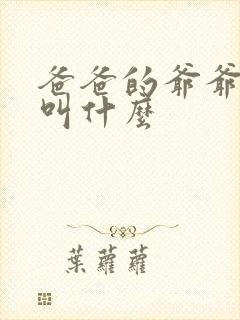 爸爸的爷爷
叫什麼
葉蘿蘿